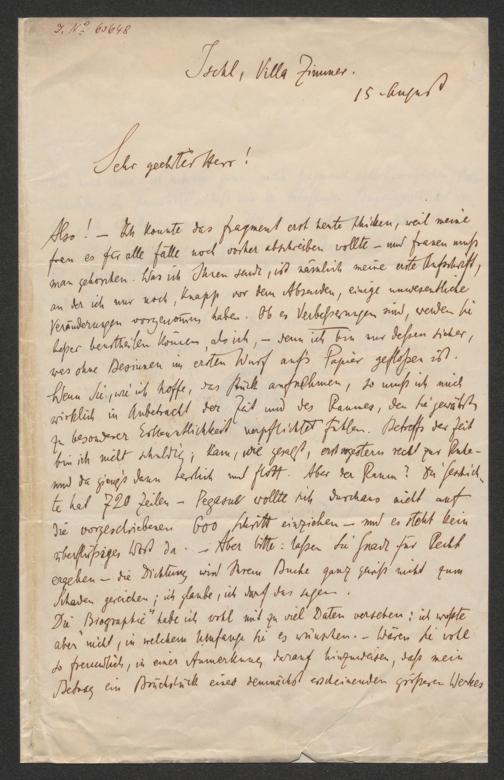 J. No 60648
Ischl, Villa Zimmer.
15 August
Sehr geehrter Herr!
Also! – Ich konnte das Fragment erst heute schicken, weil meine
Frau es für alle Fälle noch vorher abschreiben wollte – und Frauen muß
man gehorchen. Was ich Ihnen sende, ist nämlich meine erste Aufschrift,
an der ich nur noch, knapp vor dem Absenden, einige unwesentliche
Veränderungen vorgenommen habe. Ob es Verbesserungen sind, werden Sie
besser beurtheilen können, als ich, – denn ich bin nur dessen sicher,
was ohne Besinnen im ersten Wurf aufs Papier geflossen ist.
Wenn Sie, wie ich hoffe, das Stück aufnehmen, so muß ich mich
wirklich in Anbetracht der Zeit und des Raumes, den Sie gewährten
zu besonderer Erkenntlichkeit verpflichtet fühlen. Betreffs der Zeit
bin ich nicht schuldig; kam, wie gesagt, erst gestern recht zur Ruhe –
und da gings dann herrlich und flott. Aber der Raum? Die Geschich-
te hat 720 Zeilen – Pegasus wollte sich durchaus nicht auf
die vorgeschriebenen 600 Schritt einziehen – und es steht kein
überflüssiges Wort da. – Aber bitte: lassen Sie Gnade für Recht
ergehen – die Dichtung wird Ihrem Buche ganz gewiß nicht zum
Schaden gereichen; ich glaube, ich darf das sagen.
Die „Biographie“ habe ich wohl mit zu viel Daten versehen: ich wußte
aber nicht, in welchem Umfange Sie es wünschen. – Wären Sie wohl
so freundlich, in einer Anmerkung darauf hinzuweisen, daß mein
Beitrag ein Bruchstück eines demnächst erscheinenden größeren Werkes